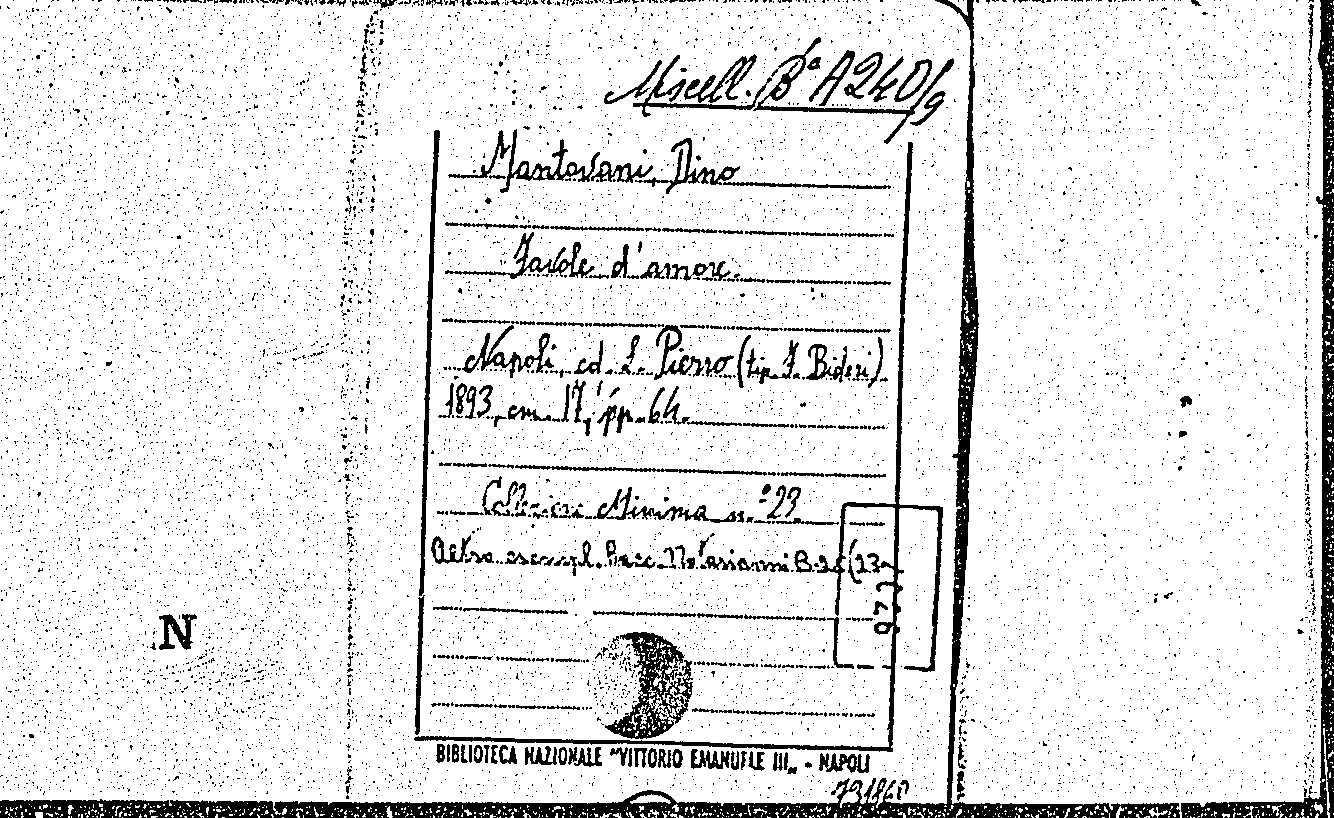 Miscell. Bª A240/9
Mantovani, Dino
Favole d'amore.
Napoli, ed. L. Pierro (tip. F. Bideri)
1893, cm. 17, pp. 64.
Collezione Minima n.° 23.
Altro esempl. Race. Notarianni B. (23
N
BIBLIOTECA NAZIONALE "VITTORIO EMANUELE III„ - NAPOLI
731860